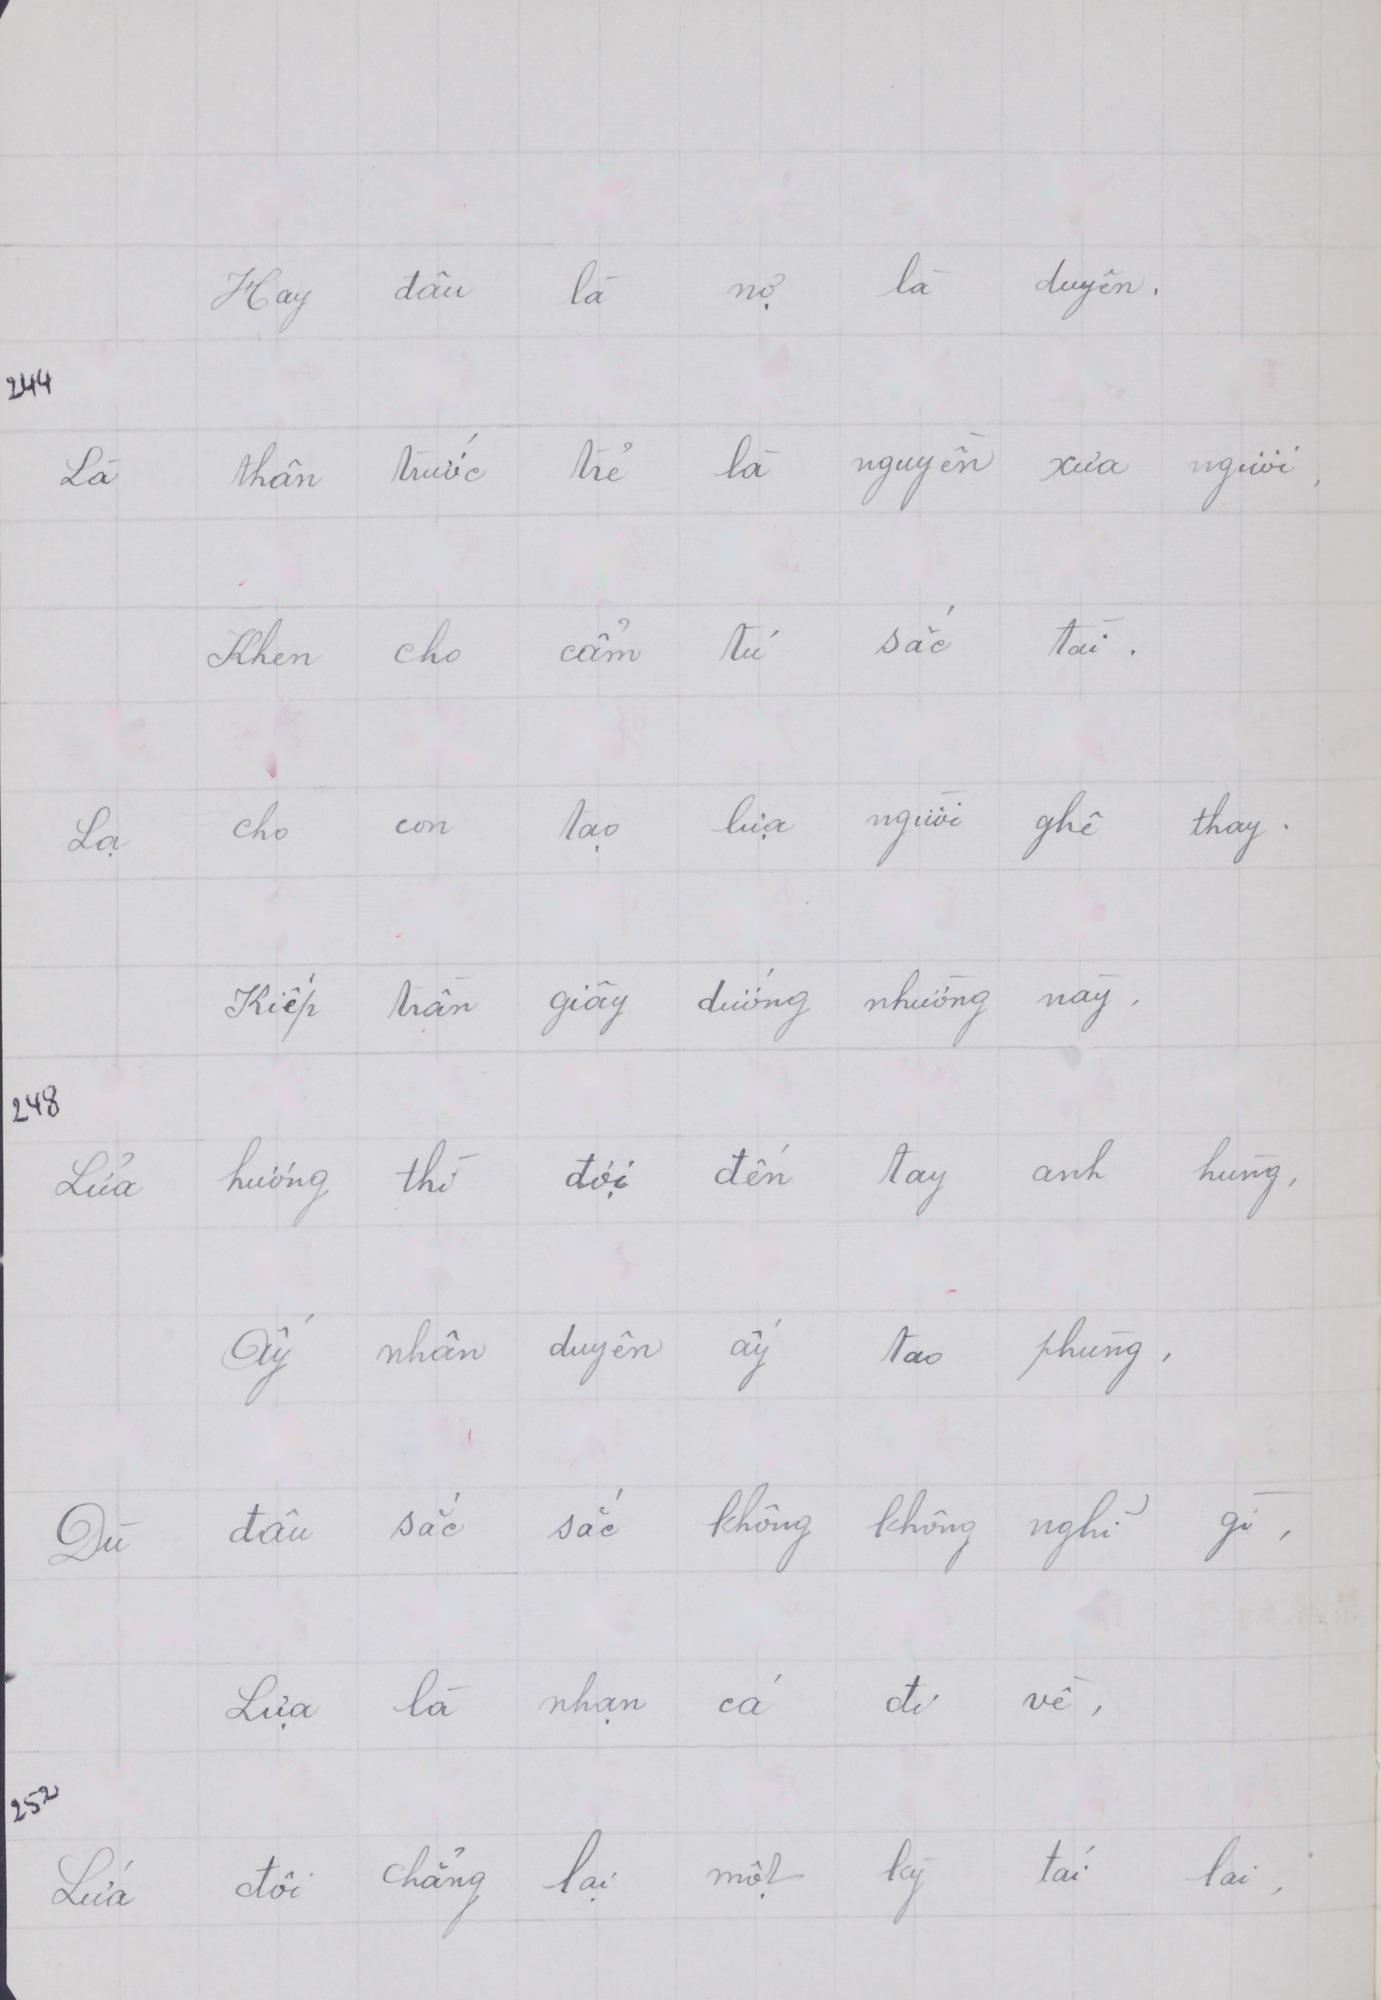 Hay đâu là nợ là duyên.
244
Là thân trước trẻ là nguyền xưa người,
Khen cho cẩm tú sắc tài.
Lạ cho con tạo lựa người ghê thay.
Kiếp trần giây dướng nhường này,
248
Lửa hương thì đợi đến tay anh hùng,
Ấy nhân duyên ấy tao phùng,
Dù đâu sắc sắc không không nghĩ gì,
Lựa là nhạn cá đi về,
252
Lứa đôi chẳng lại một kỳ tái lai,